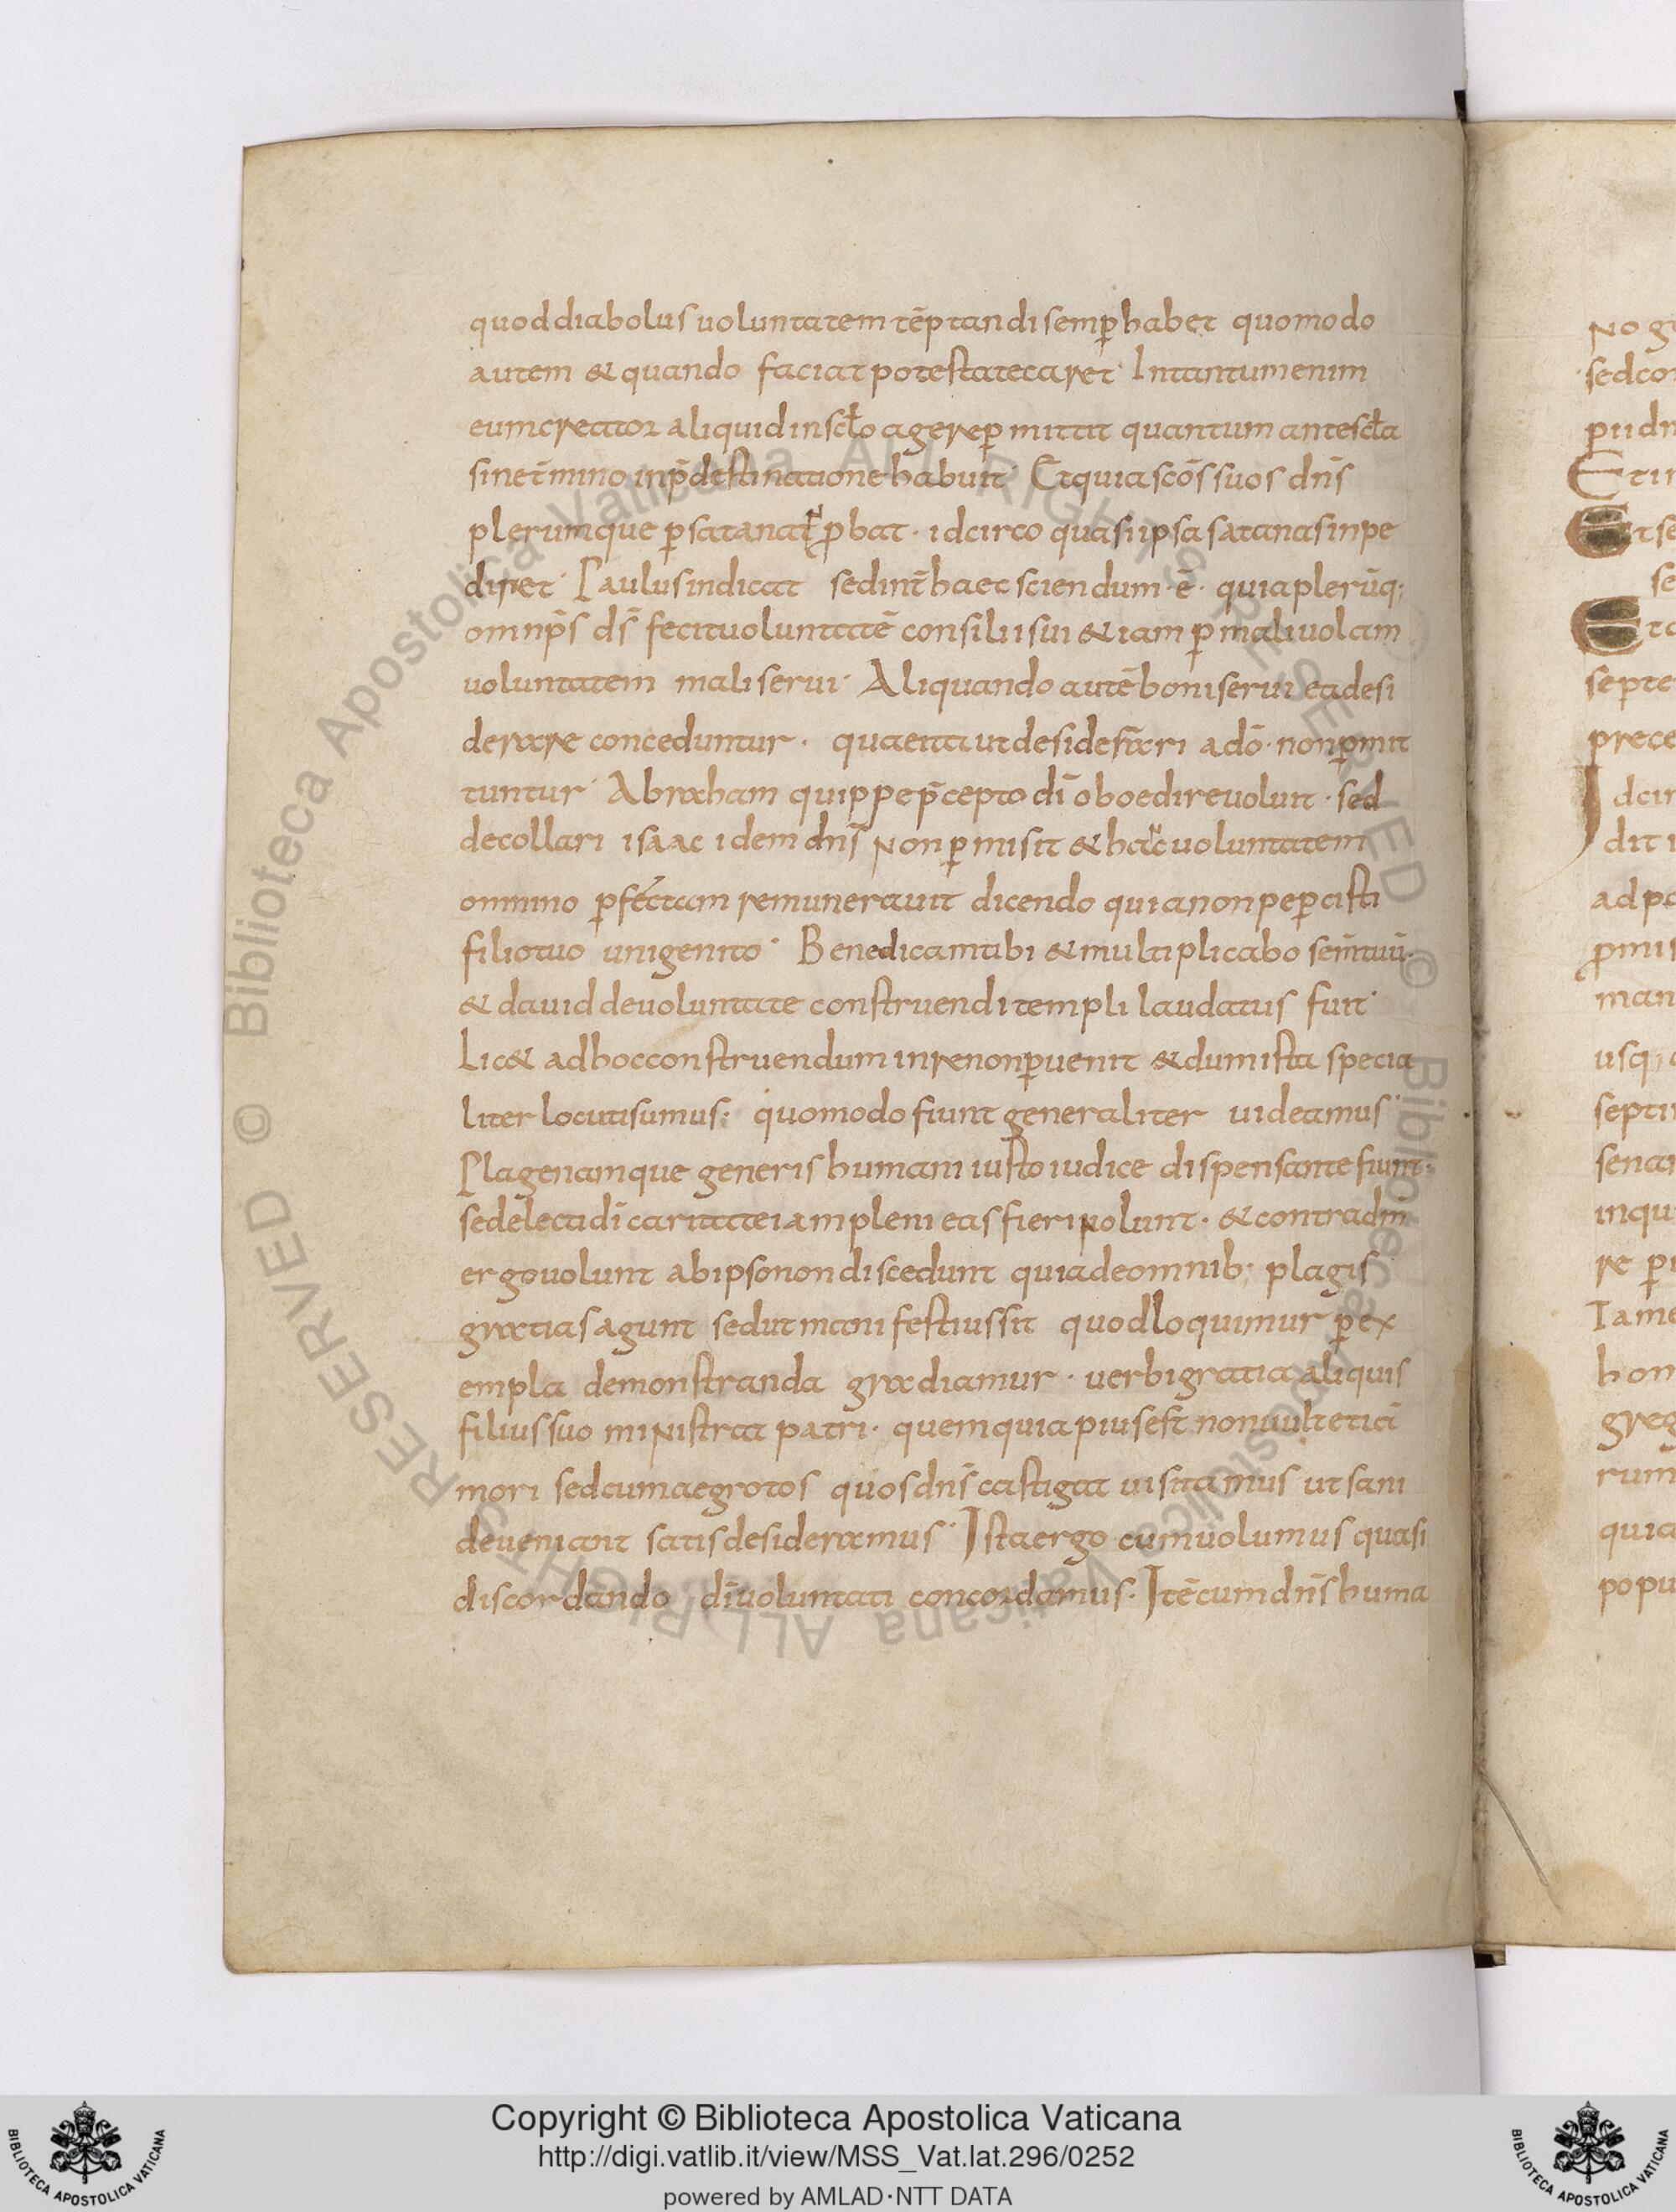 quod diabolus uoluntatem tēptandi semꝑ habet quomodo
autem & quando faciat potestate caret· Intantum enim
eum creator aliquid in scło agere ꝑmittit quantum ante scła
sine t̄mino in p̄destinatione habuit· Et quia scōs suos dn̄s
plerumque ꝑ satanat ꝓbat· idcirco quasi ipsa satanas inpe
diret· Paulus indicat sed int̄ haec sciendum·ē· quia plerūq;
omnp̄s ds̄ fecit uoluntatē consilii sui & iam ꝑ maliuolam
uoluntatem mali serui· Aliquando autē boni serui ea desi
derare conceduntur· quae ita ut desiderari a dō· non ꝑmit
tuntur· Abraham quippe p̄cepto dī oboedire uoluit· sed
decollari isaac idem dn̄s non ꝑmisit & hac uoluntatem
omnino ꝑfectam remunerauit dicendo quia non peꝑcisti
filio tuo unigenito· Benedicam tibi & multiplicabo sem̄ tuū·
& dauid de uoluntate construendi templi laudatus fuit·
Lic& ad hoc construendum in re non ꝑuenit & dum ista specia
liter locuti sumus; quomodo fiunt generaliter uideamus·
Plagenamque generis humani iusto iudice dispensante fiunt·
sed electi dī caritate iam pleni eas fieri nolunt· & contra dm̄
ergo uolunt ab ipso non discedunt quia de omnib; plagis
gratias agunt sed ut manifestius sit quod loquimur ꝑ ex
empla demonstranda gradiamur· uerbi gratia aliquis
filius suo ministrat patri· quem quia pius est non uult etiā
mori sed cum aegrotos quos dn̄s castigat uisitamus ut sani
deueniant satis desideramus· Ista ergo cum uolumus quasi
discordando dī uoluntati concordamus· Itē cum dn̄s huma
Copyright © Biblioteca Apostolica Vaticana
http://digi.vatlib.it/view/MSS_Vat.lat.296/0252
powered by AMLAD·NTT DATA
BIBLIOTECA APOSTOLICA VATICANA
BIBLIOTECA APOSTOLICA VATICANA